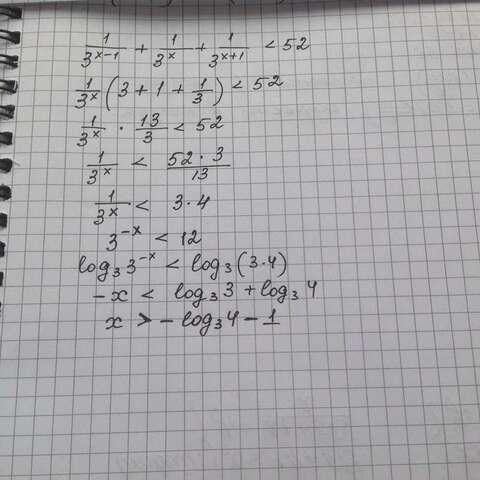 1/3^(x-1) + 1/3^x + 1/3^(x+1) < 52
1/3^x (3 + 1 + 1/3) < 52
1/3^x · 13/3 < 52
1/3^x < 52 · 3/13
1/3^x < 3 · 4
3^(-x) < 12
log₃ 3^(-x) < log₃ (3 · 4)
-x < log₃ 3 + log₃ 4
x > - log₃ 4 - 1